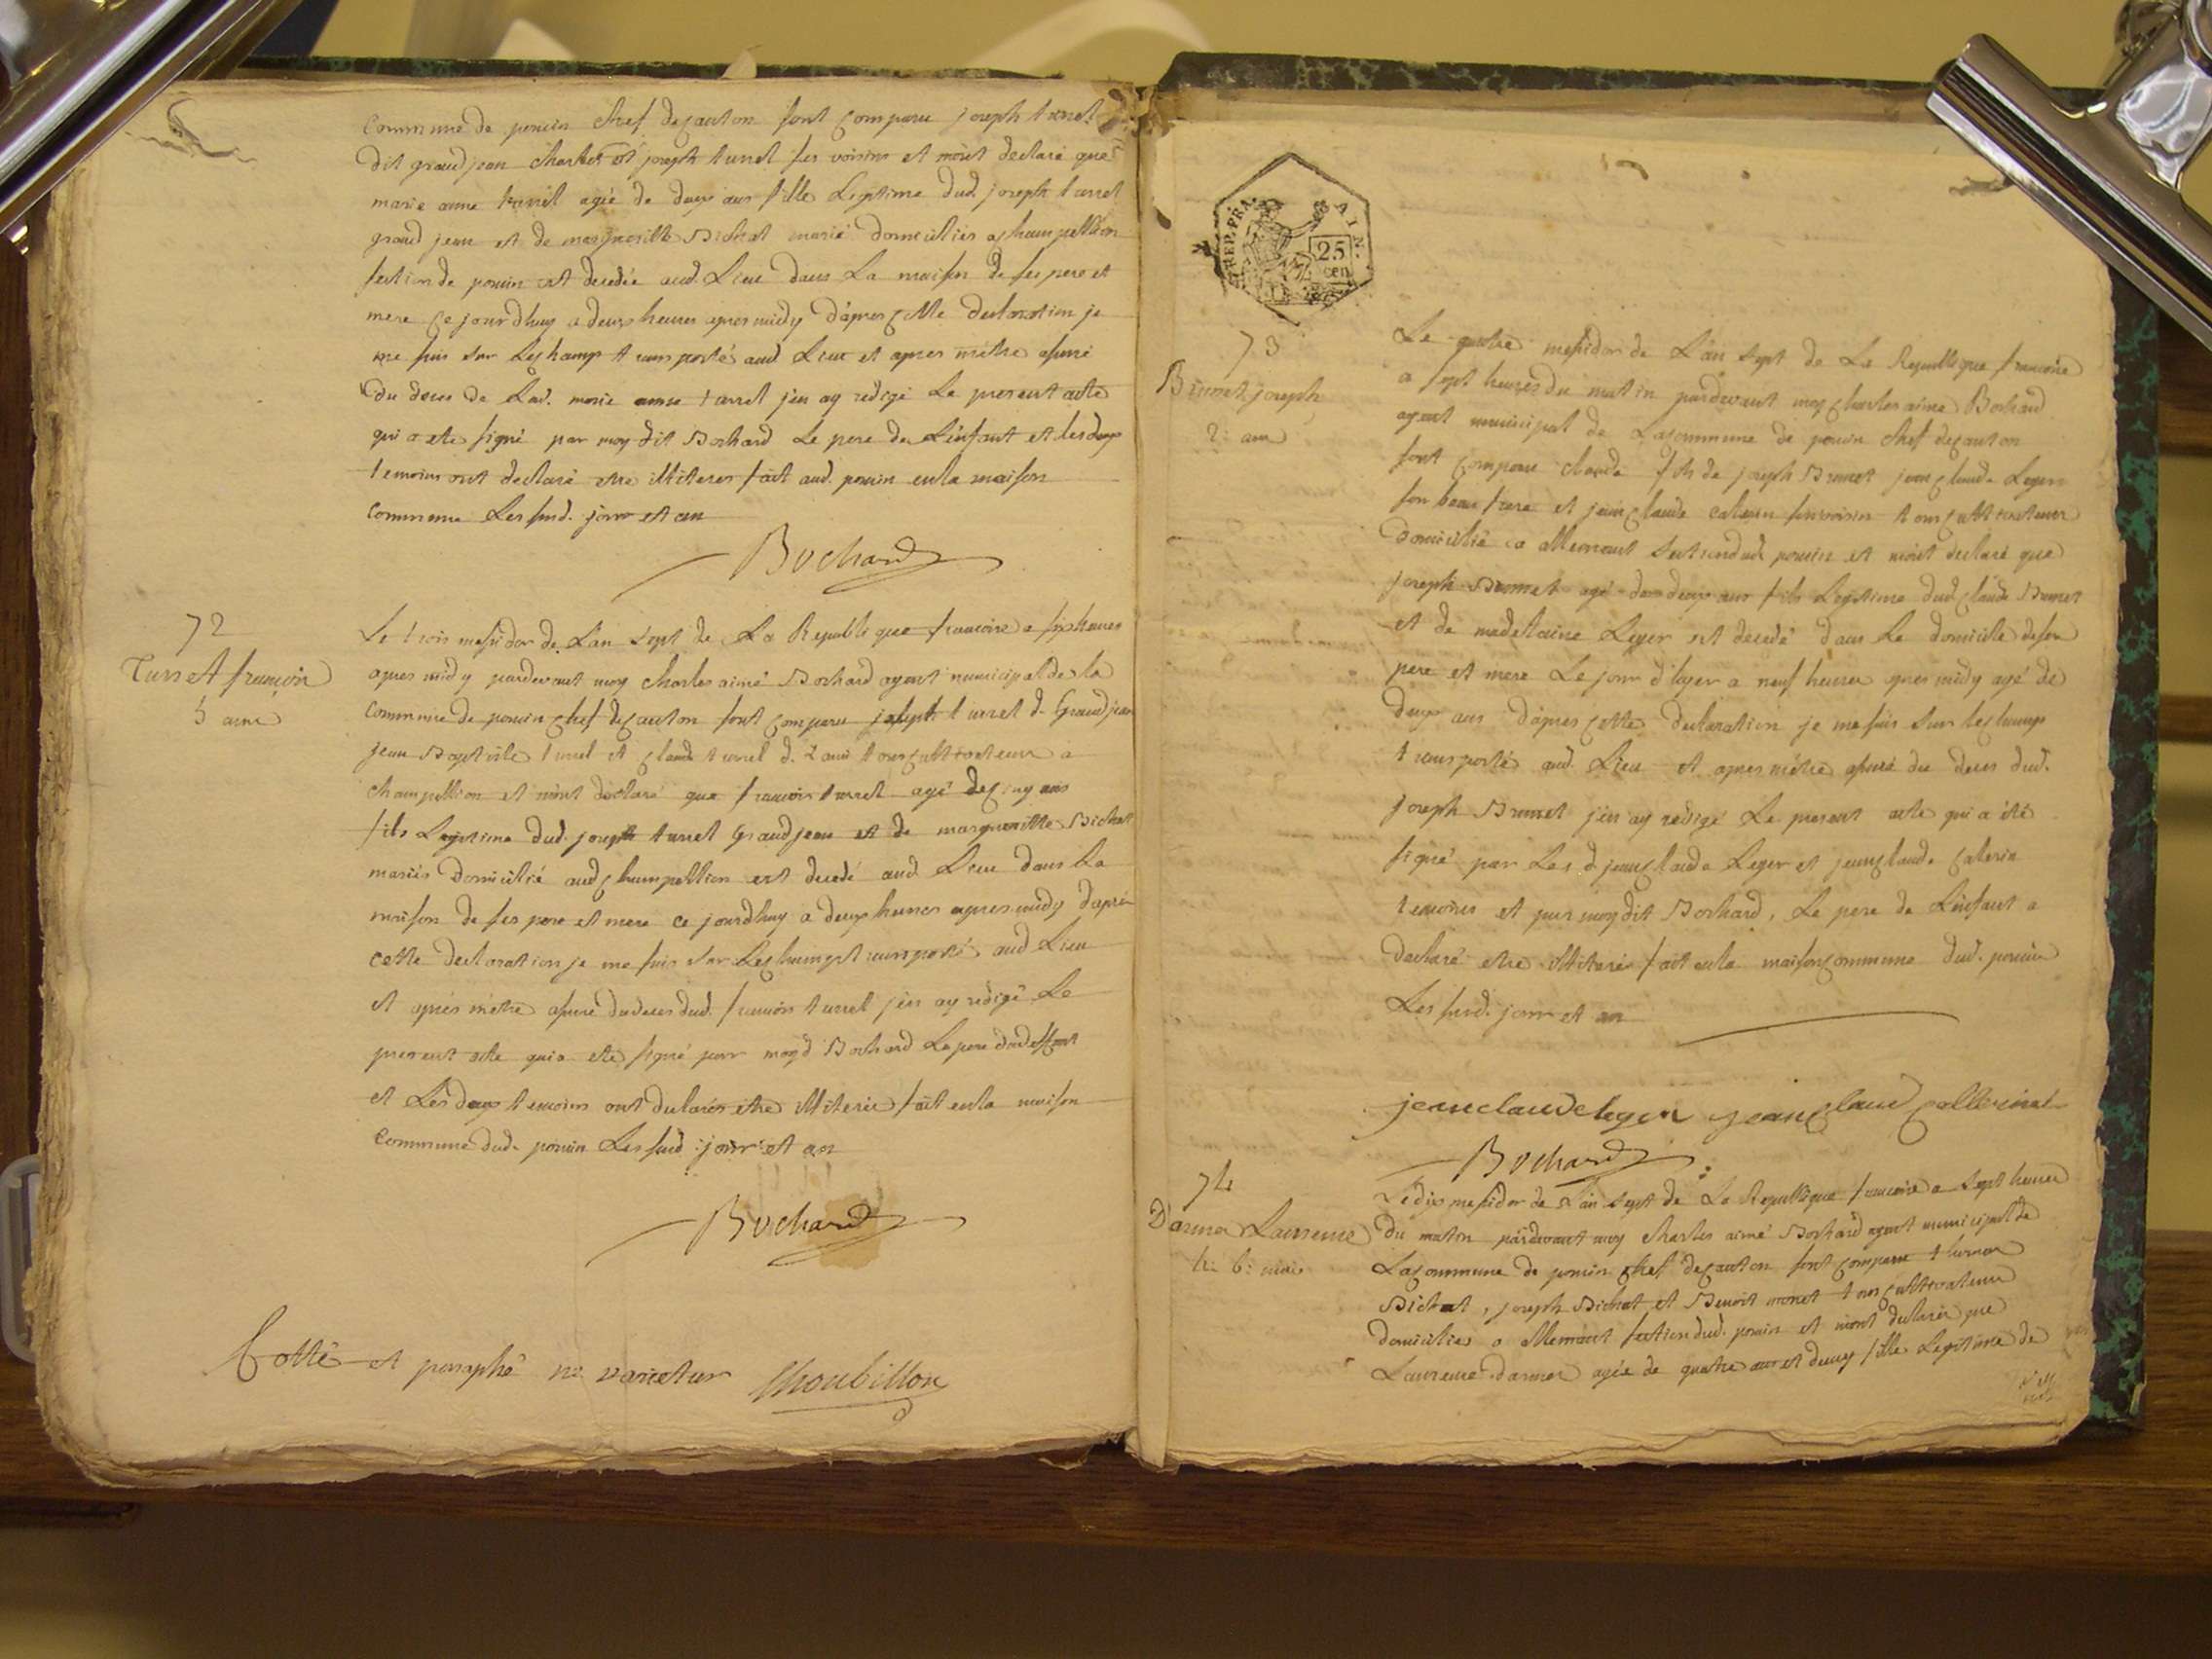 commune de poncin chef de canton sont comparu joseph turrel
dit grand jean charles et joseph turrel ses voisins et m'ont declaré que
marie anne turrel agée de deux ans fille legitime dud. joseph turrel
grand jean et de margueritte Bichat marié domiciliés a champellion
section de poncin est decedée aud. Lieu dans La maison de ses pere et
mere ce jourdhuy a deux heures apres midy d'apres cette declaration je
me suis sur Le champ transporté aud Lieu et apres m'etre assuré
du deces de Lad. marie anne turrel j'en ay redigé Le present acte
qui a eté signé par moy dit Bochard Le pere de L'enfant et les deux
temoins ont declaré etre illiteres fait aud. poncin en la maison
commune Les sud. jour et an
Bochard
72
Turrel françois
5 ans
Le trois messidor de L'an sept de La Republique francoise a six heures
apres midy pardevant moy charles aimé Bochard agent municipal de la
commune de poncin chef de canton sont comparu joseph turrel d. Grand jean
jean Baptiste turrel et claude turrel d. tous cultivateurs a
champellion et m'ont declaré que francois turrel agé de cinq ans
fils Legitime dud. joseph turrel Grand jean et de margueritte Bichat
mariés domicilié aud champellion est decedé aud Lieu dans La
maison de ses pere et mere ce jourdhuy a deux heures apres midy d'apres
cette declaration je me suis sur Le champ transporté aud Lieu
et apres m'etre assuré du deces dud. francois turrel j'en ay redigé Le
present acte qui a eté signé par moy d Bochard Le pere dud
et Les deux temoins ont declarés etre illiteré fait en la maison
commune dud. poncin Les sud. jour et an
Bochard
Cotté et paraphé ne varietur Choubillon
REP. FRA. AIN. 25 cen
73
Brunet joseph
2. ans
Le quatre messidor de L'an sept de La Republique francoise
a sept heures du matin pardevant moy charles aimé Bochard
agent municipal de La commune de poncin chef de canton
sont comparu claude fils de joseph Brunet jean claude Leger
son beau frere et jean claude caterin son voisin tous cultivateurs
domicilié a allement section dud. poncin et m'ont declaré que
joseph Brunet agé de deux ans fils Legitime dud claude Brunet
et de madelaine Leger est decedé dans Le domicile de son
pere et mere Le jour d'hyer a neuf heures apres midy agé de
deux ans d'apres cette declaration je me suis sur Le champ
transporté aud. Lieu et apres m'etre assuré du deces dud.
joseph Brunet j'en ay redigé Le present acte qui a eté
signé par Les d jean claude Leger et jean claude caterin
temoins et par moy dit Bochard, Le pere de L'enfant a
declaré etre illiteré fait en la maison commune dud. poncin
Les sud. jour et an
jean claude leger jean claud catterinat
Bochard
74
Darmer Laurence
4. 6. mois
Le dix messidor de L'an sept de La Republique francoise a sept heures
du matin pardevant moy charles aimé Bochard agent municipal de
La commune de poncin chef de canton sont comparu
Bichat, joseph Bichat et Benoit monet tous cultivateurs
domiciliés a allement section dud. poncin et m'ont declarés que
Laurence darmer agée de quatre ans et demy fille Legitime de